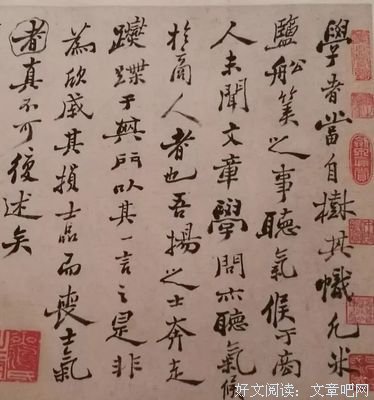 學者當自樹其幟凡米
鹽船筭之事聽氣候于商
人未聞文章學問亦聽氣候
於商人者也吾揚之士奔走
躞蹀于其門以其一言之是非
為欣戚其損士品而喪士氣
者真不可復述矣
好文阅读：文章吧网